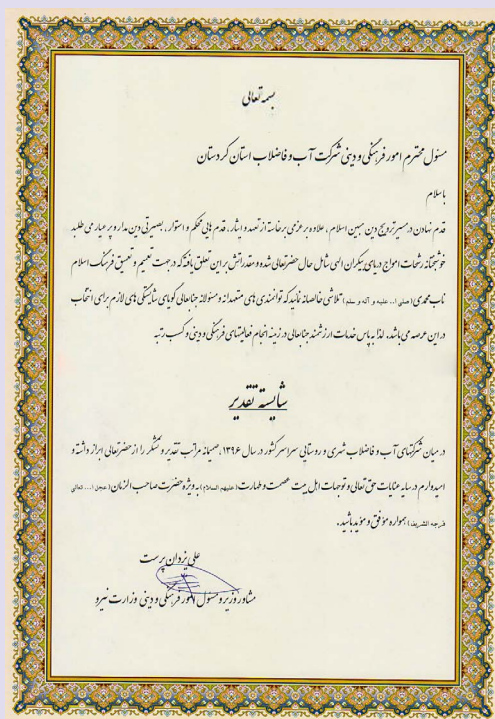 بسمه تعالی
مسئول محترم امور فرهنگی و دینی شرکت آب و فاضلاب استان کردستان
باسلام
قدم نهادن در مسیر ترویج دین مبین اسلام ، علاوه بر عزمی برخاسته از تعهد و ایثار ، قدم هایی محکم و استوار ، بصیرتی دین مدار و پر عیار می طلبد
خوشبختانه رشحات امواج دریای بیکران الهی شامل حال حضرتعالی شده و مقدراتش بر این تعلق یافته که در جهت تعمیم و تعمیق فرهنگ اسلام
ناب محمدی (صلی ا... علیه و آله و سلم) تلاشی خالصانه نمائید که توانمندی های متعهدانه و مسئولانه جنابعالی گویای شایستگی های لازم برای انتخاب
در این عرصه می باشد. لذا به پاس خدمات ارزشمند جنابعالی در زمینه انجام فعالیتهای فرهنگی و دینی و کسب رتبه
شایسته تقدیر
در میان شرکتهای آب و فاضلاب شهری و روستایی سراسر کشور در سال ۱۳۹۶، صمیمانه مراتب تقدیر و تشکر را از حضرتعالی ابراز داشته و
امیدوارم در سایه عنایات حق تعالی و توجهات اهل بیت عصمت و طهارت (علیهم السلام) به ویژه حضرت صاحب الزمان (عجل ا... تعالی
فرجه الشریف) همواره موفق و مؤید باشید.
علی یزدان پرست
مشاور وزیر و مسئول امور فرهنگی و دینی وزارت نیرو